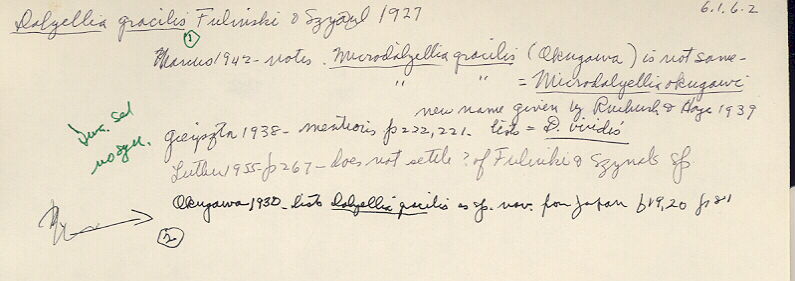 Dalyellia gracilis Fulinski & Szynal 1927
6.1.6.2
1
Marcus 1942 - notes. Microdalyellia gracilis (Okugawa) is not same -
" " = Microdalyellia okugawi
new name given by Ruebush & Hayes 1939
Gieysztor 1938 - mentions p 222, 221. lists = D. viridis
Luther 1955 p 267 - does not settle ? of Fulinski & Szynals sp
Okugawa 1930 - lists Dalyellia gracilis as sp. nov. from Japan p 19, 20
2